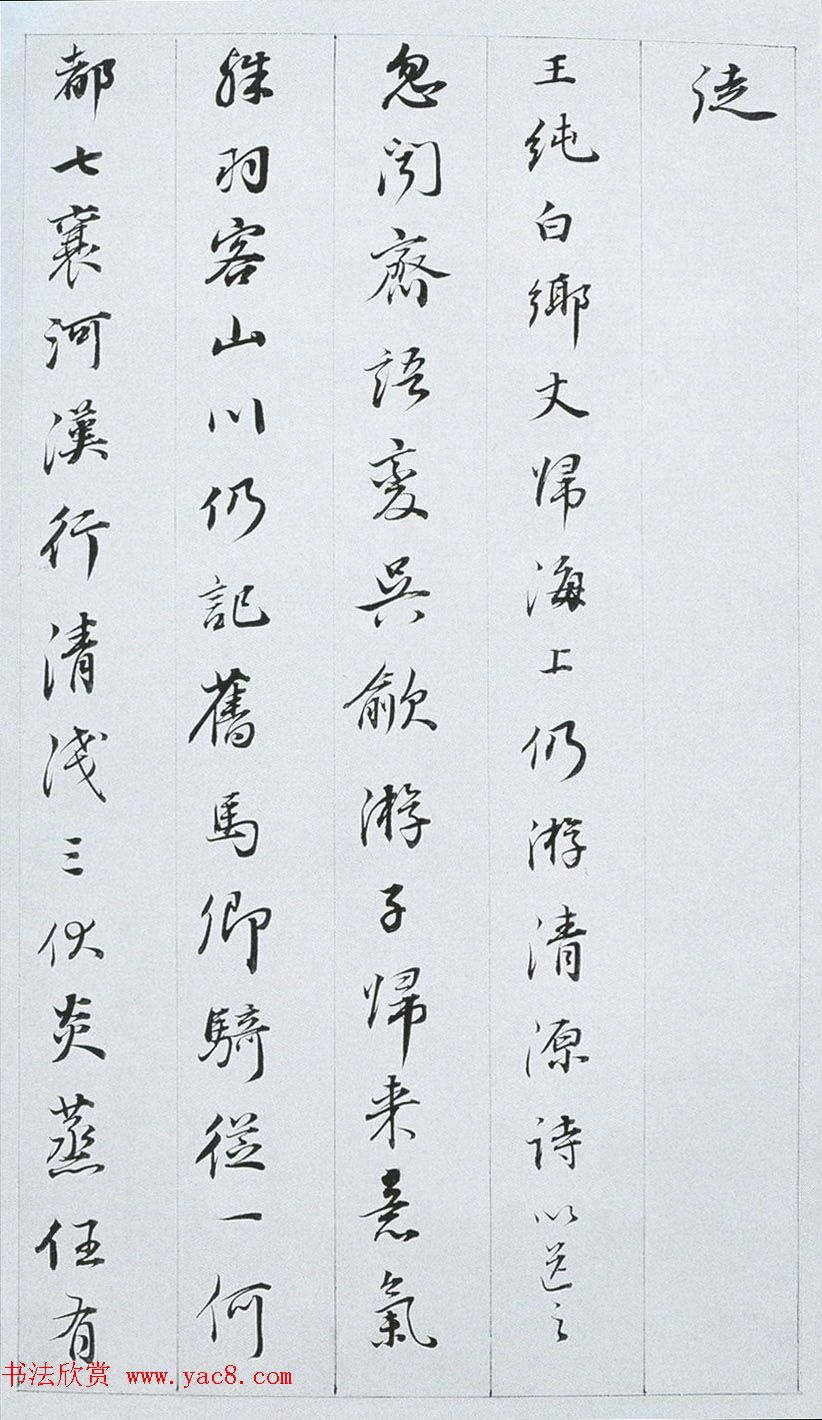 徒
王純白鄉丈歸海上仍游清源詩以送之
忽聞齋語變吳歈游子歸来意氣
殊羽客山川仍記舊馬卿騎從一何
都七襄河漢行清淺三伏炎蒸任有
书法欣赏 www.yac8.com